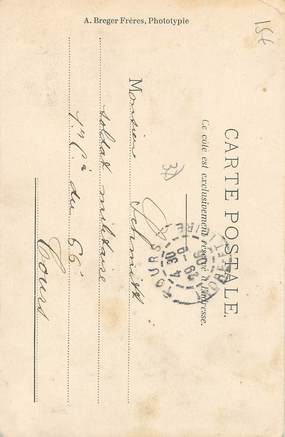 A. Breger Fréres, Phototypie
15€
CARTE POSTALE.
Ce côté est exclusivement réservé à l'adresse.
Monsieur Schmidt
soldat militaire
du 66e
Tours
TOURS